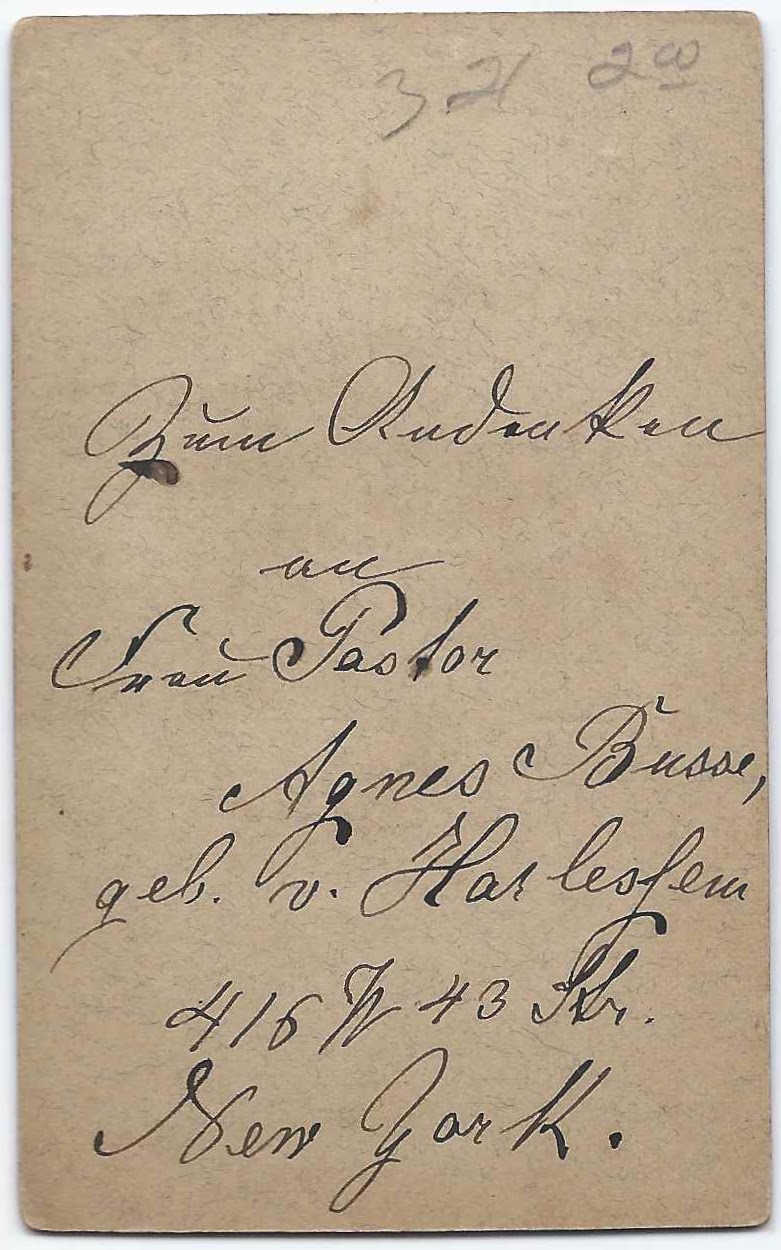 321 200
Zum Andenken
an
Frau Pastor
Agnes Busse,
geb. v. Harlessem
416 W 43 Str.
New York.